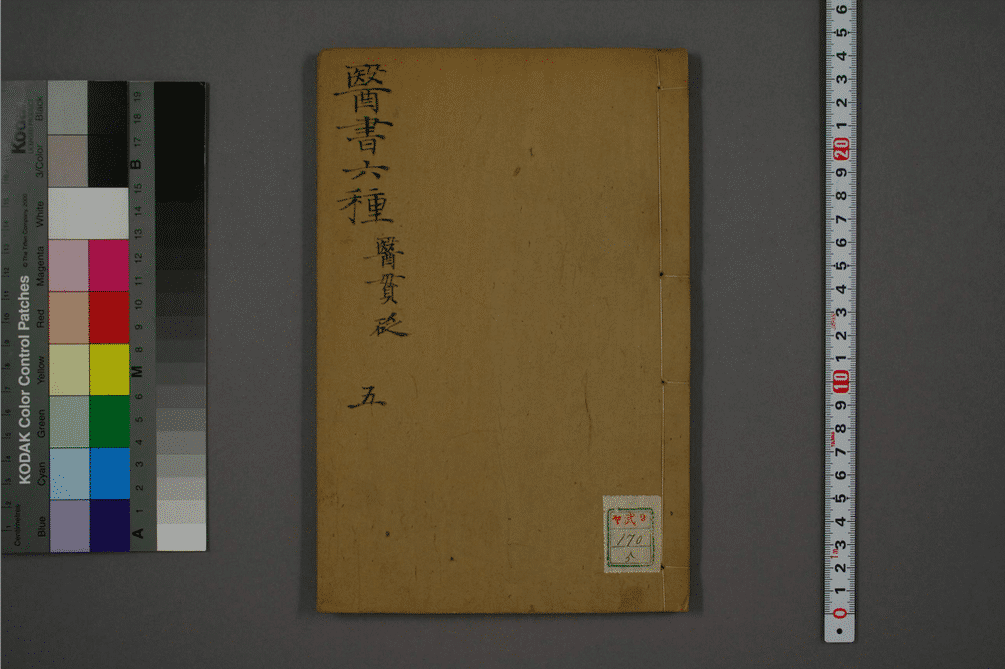 醫書六種
醫貫砭
五
170
KODAK Color Control Patches
© The Tiffen Company, 2000
Kodak
Centimetres
Blue
Cyan
Green
Yellow
Red
Magenta
White
3/Color
Black
A 1 2 3 4 5 6 M 8 9 10 11 12 13 14 15 B 17 18 19
0 1 2 3 4 5 6 7 8 9 10 1 2 3 4 5 6 7 8 9 20 1 2 3 4 5 6